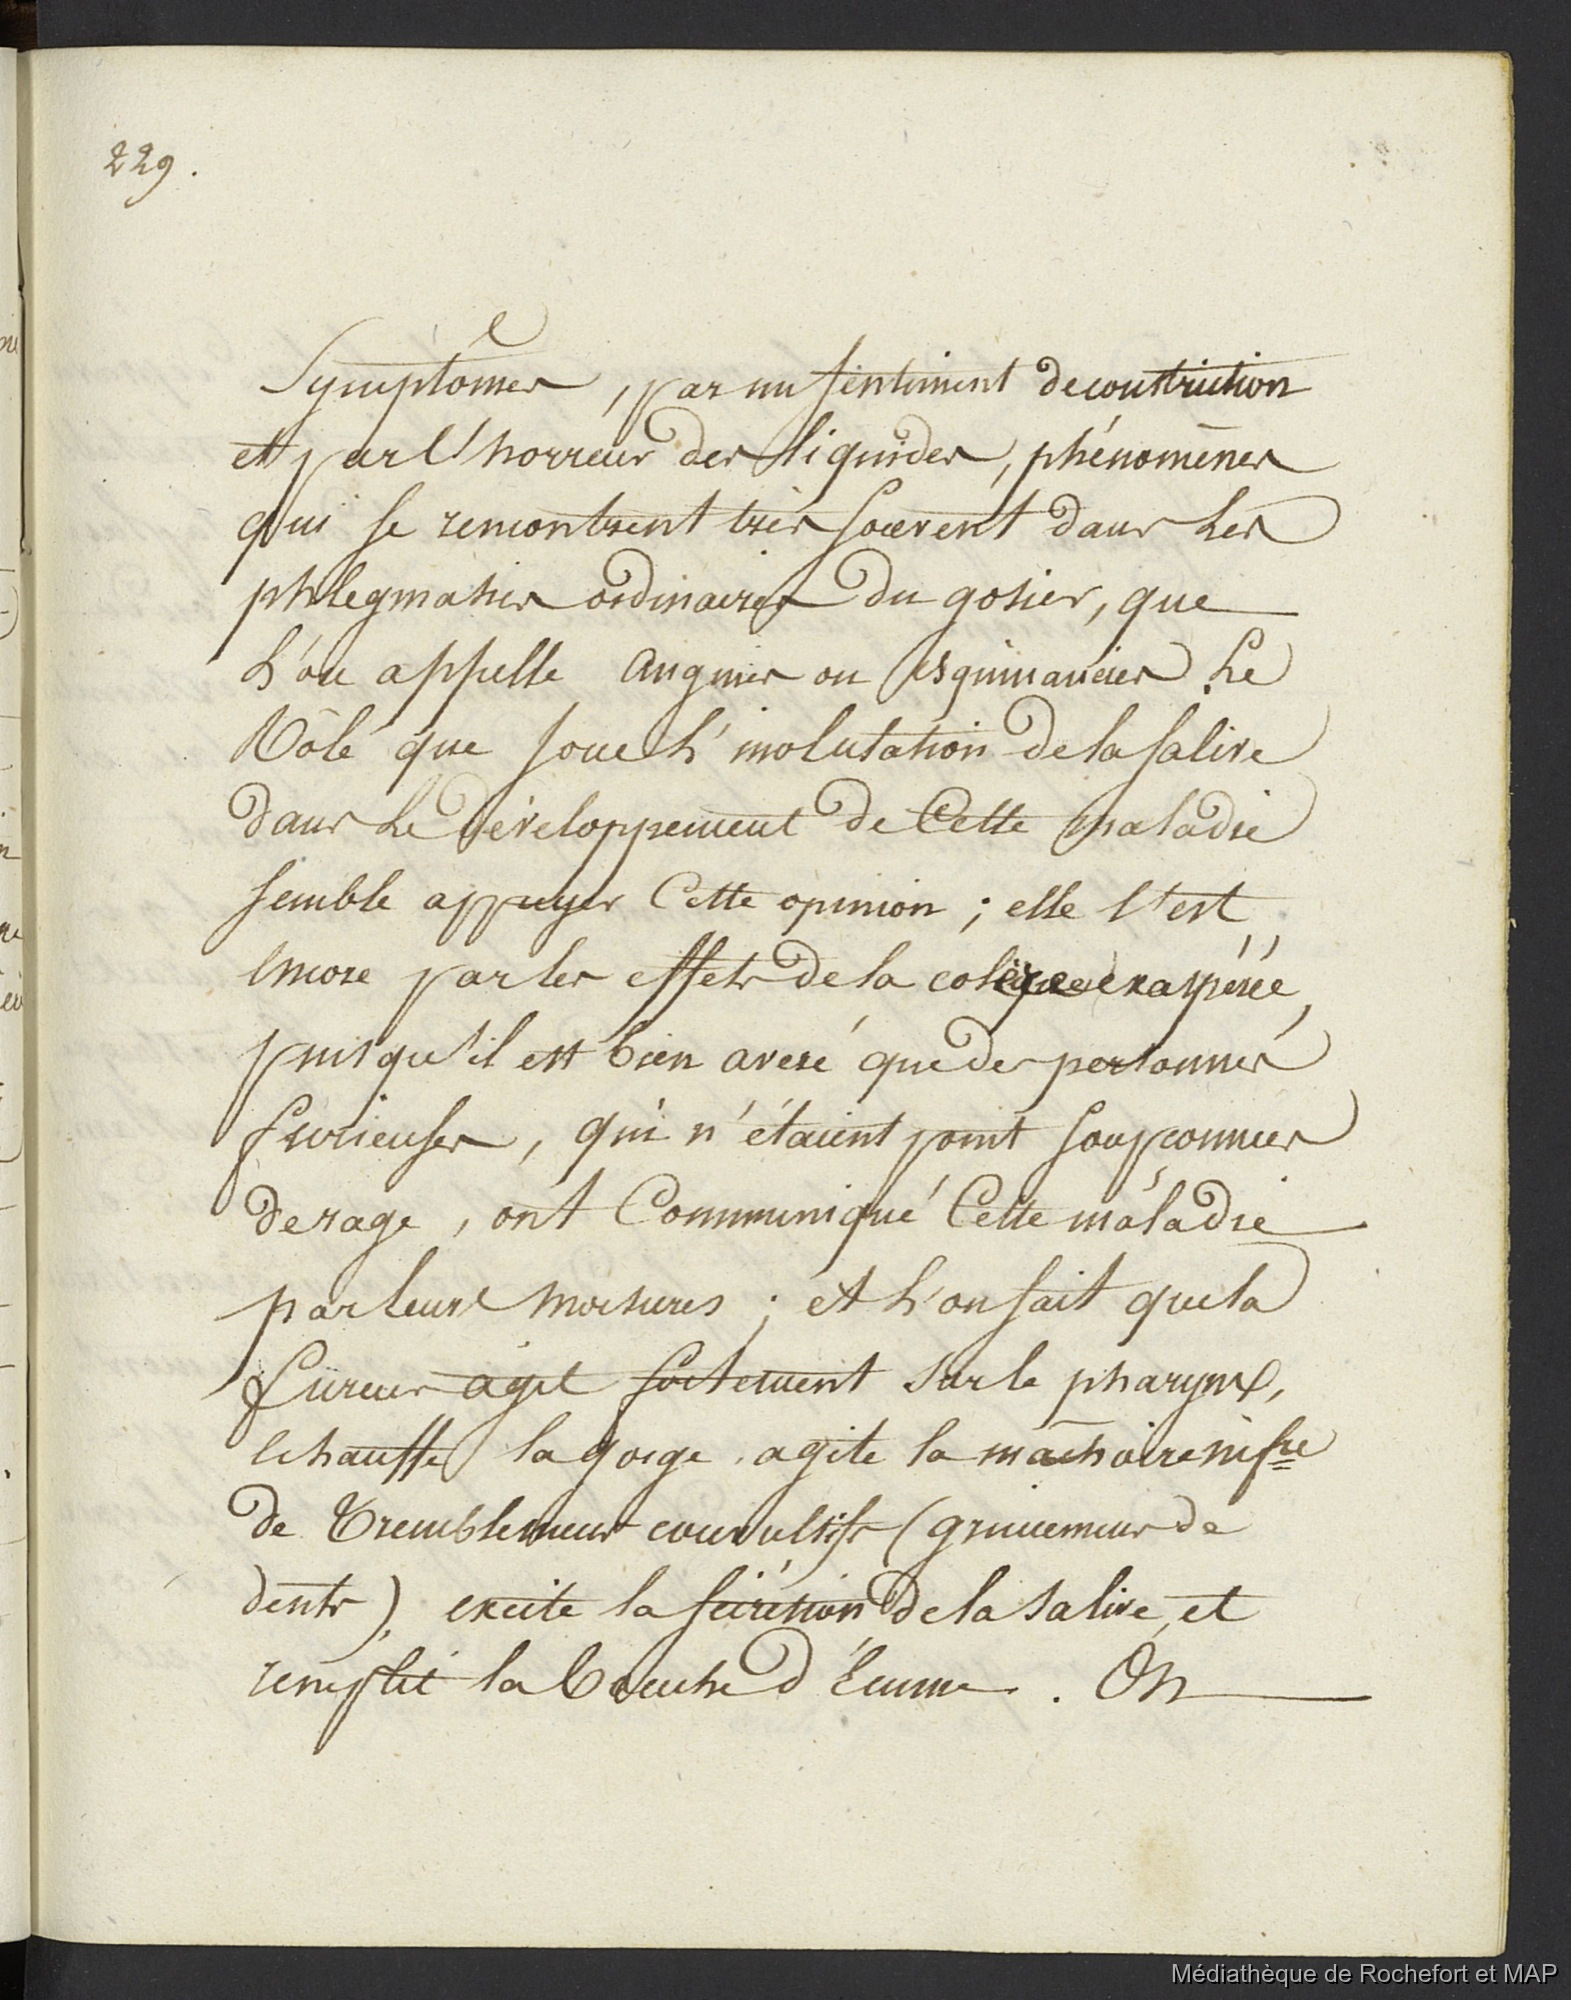 229.
Symptômes, par un sentiment de constriction
et par l'horreur des liquides, phénomènes
qui se remontrent très souvent dans les
phlegmasies ordinaires du gosier, que
l'on appelle angines ou esquinancies. Le
Rôle que joue l'inolutation de la salive
dans le développement de Cette maladie
semble appuyer Cette opinion ; elle l'est
encore par les effets de la colère exaspérée,
puisqu'il est bien avéré que des personnes
furieuses, qui n'étaient point soupçonnées
de rage, ont Communiqué Cette maladie
par leurs morsures ; et l'on sait que la
fureur agit fortement sur le pharynx,
échauffe la gorge, agite la machoire infre
de Tremblemens convulsifs (grincemens de
dents), excite la sécrétion de la salive, et
remplit la bouche d'Écume. On
Médiathèque de Rochefort et MAP